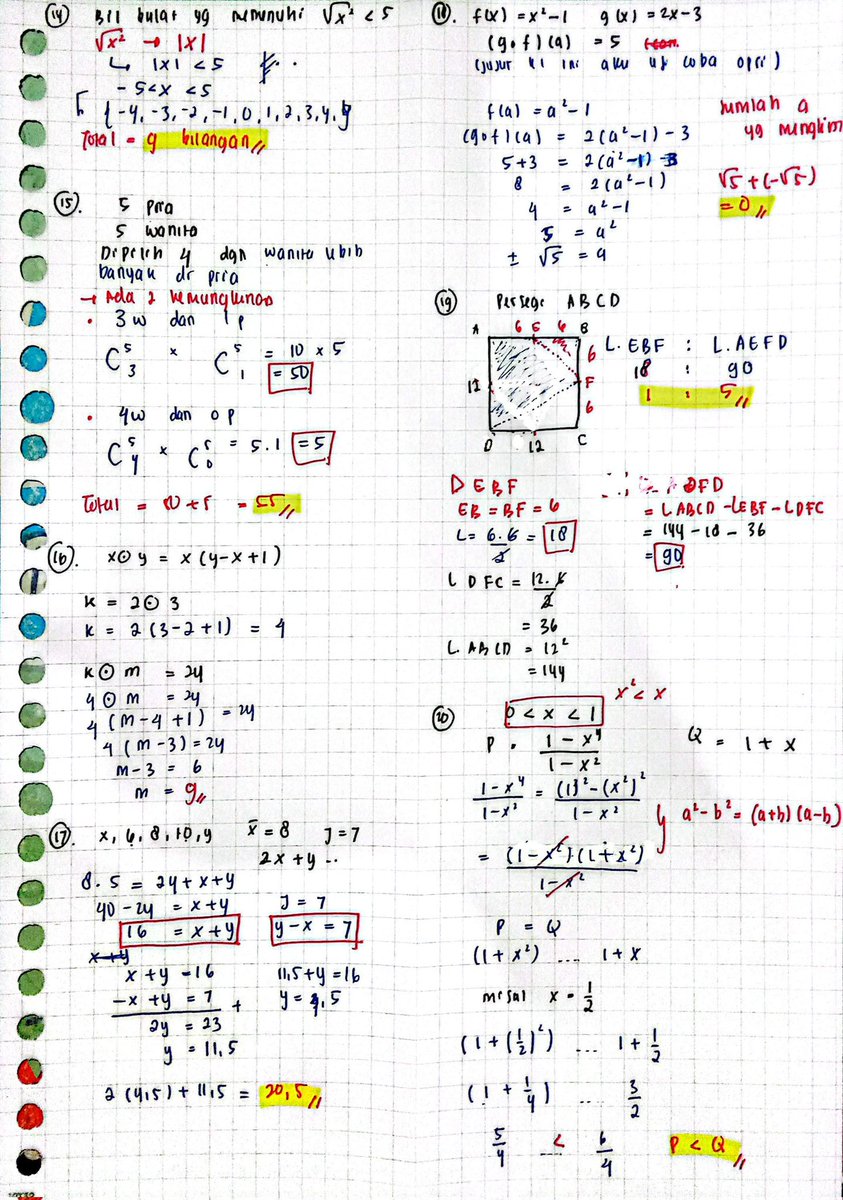 (14) Bil bulat yg memenuhi √x² < 5
√x² → |x|
↳ |x| < 5
-5<x <5
{-4, -3, -2, -1, 0, 1, 2, 3, 4, }
Total = 9 bilangan
(15). 5 pria
5 wanita
Dipilih 4 dgn wanita lebih
banyak dr pria
→ Ada 2 kemungkinan
• 3w dan 1p
C⁵₃ × C⁵₁ = 10 × 5
= 50
• 4w dan 0p
C⁵₄ × C⁵₀ = 5.1 = 5
Total = 50 + 5 = 55
(16). x⊙y = x(y-x+1)
k = 2⊙3
k = 2(3-2+1) = 4
k⊙m = 24
4⊙m = 24
4(m-4+1) = 24
4(m-3) = 24
m-3 = 6
m = 9
(17). x, 6, 8, 10, y x̄ = 8 J = 7
2x+y ..
8.5 = 24+x+y
40-24 = x+y J = 7
16 = x+y y-x = 7
x+y
x+y = 16 11,5+y = 16
-x+y = 7 + y = 4,5
2y = 23
y = 11,5
2(4,5) + 11,5 = 20,5
(18). f(x) = x²-1 g(x) = 2x-3
(gof)(a) = 5
(jujur ki ini aku uk coba opsi)
f(a) = a²-1
(gof)(a) = 2(a²-1) - 3
5+3 = 2(a²-1)
8 = 2(a²-1)
4 = a²-1
5 = a²
± √5 = a
Jumlah a
yg mungkin
√5 + (-√5)
= 0
(19) Persegi ABCD
A 6 E 6 B
6
12 F
6
D 12 C
L. EBF : L. AEFD
18 : 90
1 : 5
D EBF
EB = BF = 6
L = 6.6/2 = 18
L DFC = 12.6/2
= 36
L. ABCD = 12²
= 144
FD
= LABCD - LEBF - LDFC
= 144 - 18 - 36
= 90
(20) 0 < x < 1 x² < x
P = (1-x⁴)/(1-x²) Q = 1 + x
(1-x⁴)/(1-x²) = ((1)²-(x²)²)/(1-x²)
a²-b² = (a+b)(a-b)
= (1-x²)(1+x²)/(1-x²)
P = Q
(1+x²) .... 1+x
misal x = 1/2
(1+(1/2)²) ... 1 + 1/2
(1 + 1/4) .... 3/2
5/4 < ... 6/4 P < Q